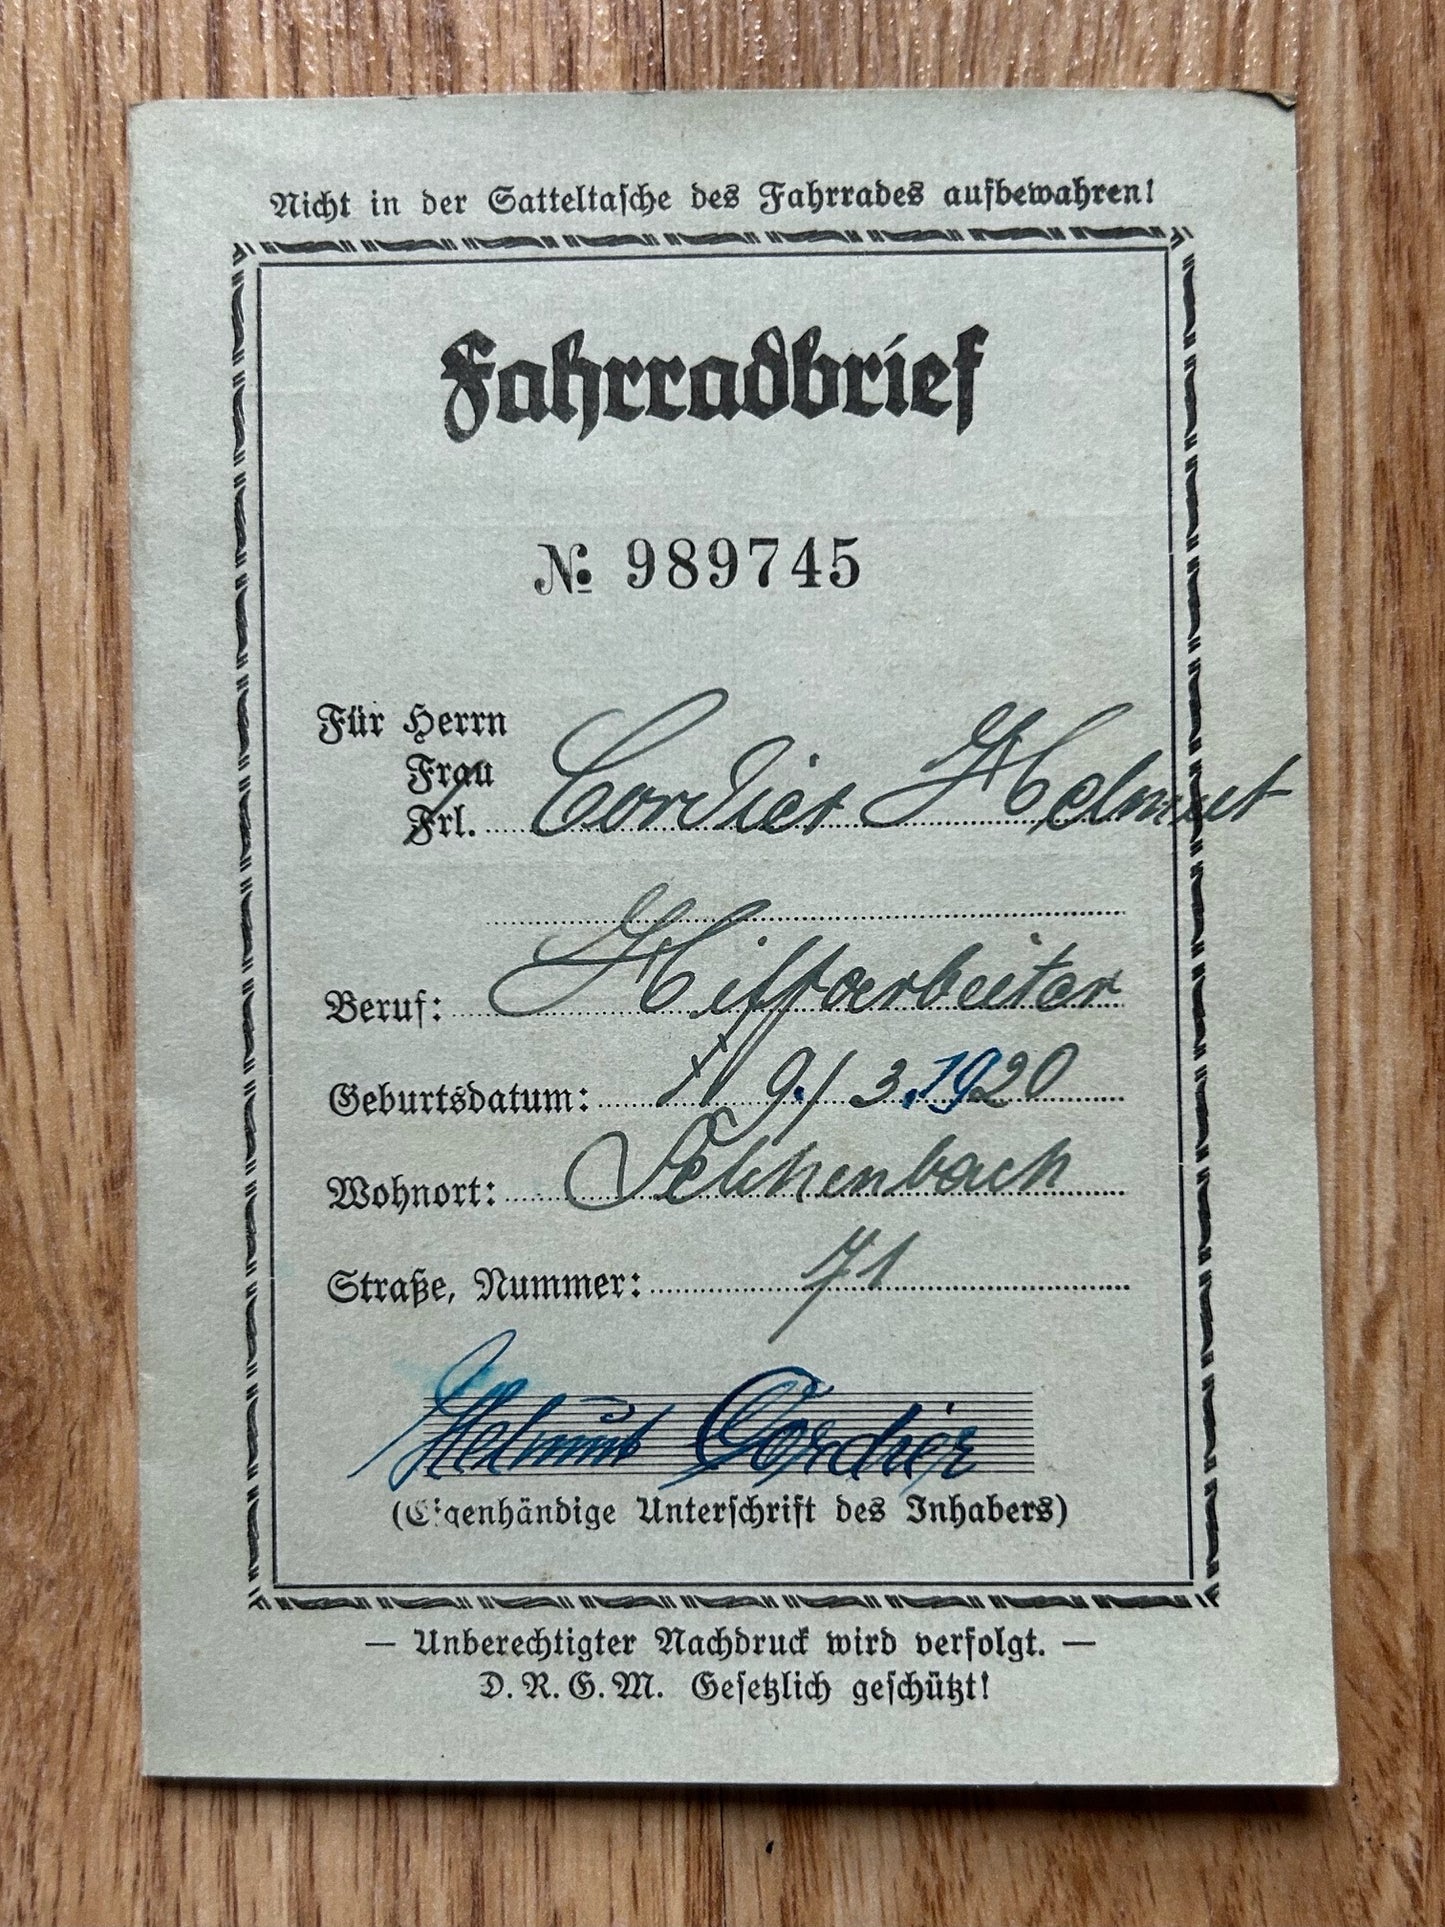 Nicht in der Satteltasche des Fahrrades aufbewahren!
Fahrradbrief
№ 989745
Für Herrn
Frau
Frl. Cordier Helmut
Beruf: Hilfsarbeiter
Geburtsdatum: 9./3.1920
Wohnort:
Straße, Nummer: 71
Helmut Cordier
(Eigenhändige Unterschrift des Inhabers)
— Unberechtigter Nachdruck wird verfolgt. —
D. R. G. M. Gesetzlich geschützt!